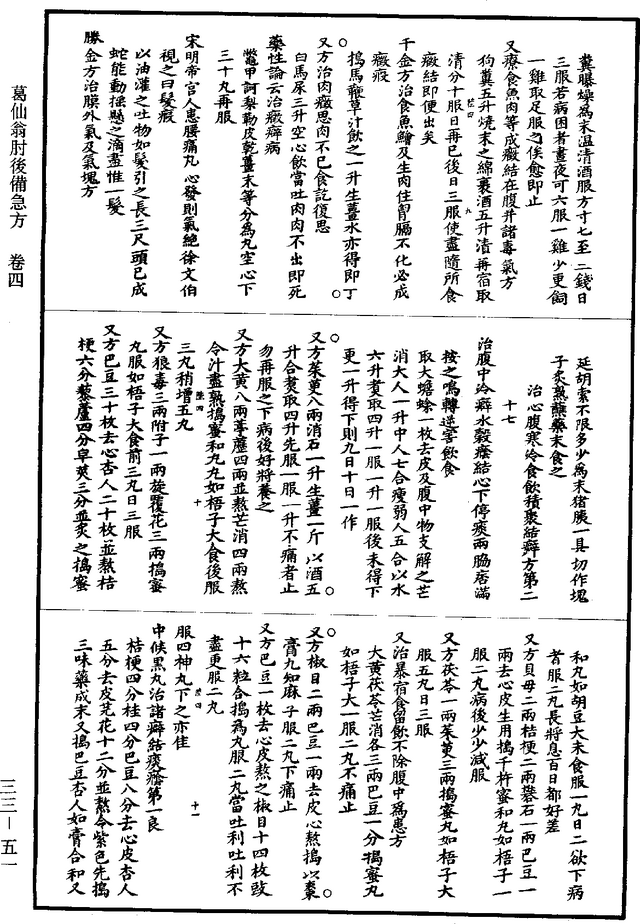 葛仙翁肘後備急方 卷四
三三一五一
糞曝燥為末溫清酒服方寸七至二錢日
三服若病困者晝夜可六服一雞少更飼
一雞取足服之俟愈即止
又療食魚肉等成癥結在腹并諸毒氣方
狗糞五升燒末之綿裹酒五升漬再宿取
清分十服日再已後日三服使盡隨所食
癥結即便出矣
千金方治食魚鱠及生肉住胷膈不化必成
癥瘕
搗馬鞭草汁飲之一升生薑水亦得即丁
又方治肉癥思肉不已食訖復思
白馬尿三升空心飲當吐肉肉不出即死
藥性論云治癥癖病
鼈甲訶梨勒皮乾薑末等分為丸空心下
三十丸再服
宋明帝宮人患腰痛牽心發則氣絕徐文伯
視之曰髮瘕
以油灌之吐物如髮引之長三尺頭已成
蛇能動搖懸之滴盡惟一髮
勝金方治膜外氣及氣塊方
延胡索不限多少為末猪胰一具切作塊
子炙熟蘸藥末食之
治心腹寒冷食飲積聚結癖方第二
十七
治腹中冷癖水穀癊結心下停痰兩脇痞滿
按之鳴轉逆害飲食
取大蟾蜍一枚去皮及腹中物支解之芒
消大人一升中人七合瘦弱人五合以水
六升煑取四升一服一升一服後未得下
更一升得下則九日十日一作
又方茱萸八兩消石一升生薑一斤以酒五
升合煑取四升先服一服一升不痛者止
勿再服之下病後好將養之
又方大黃八兩葶藶四兩並熬芒消四兩熬
令汁盡熟搗蜜和丸丸如梧子大食後服
三丸稍增五丸
又方狼毒三兩附子一兩旋覆花三兩搗蜜
丸服如梧子大食前三丸日三服
又方巴豆三十枚去心杏人二十枚並熬桔
梗六分藜蘆四分皁莢三分並炙之搗蜜
和丸如胡豆大未食服一丸日二欲下病
者服二丸長將息百日都好差
又方貝母二兩桔梗二兩礬石一兩巴豆一
兩去心皮生用搗千杵蜜和丸如梧子一
服二丸病後少少減服
又方茯苓一兩茱萸三兩搗蜜丸如梧子大
服五丸日三服
又治暴宿食留飲不除腹中為患方
大黃茯苓芒消各三兩巴豆一分搗蜜丸
如梧子大一服二丸不痛止
又方椒目二兩巴豆一兩去皮心熬搗以棗
膏丸如麻子服二丸下痛止
又方巴豆一枚去心皮熬之椒目十四枚豉
十六粒合搗為丸服二丸當吐利吐利不
盡更服二丸
服四神丸下之亦佳
中候黑丸治諸癖結痰癊第一良
桔梗四分桂四分巴豆八分去心皮杏人
五分去皮芫花十二分並熬令紫色先搗
三味藥成末又搗巴豆杏人如膏合和又